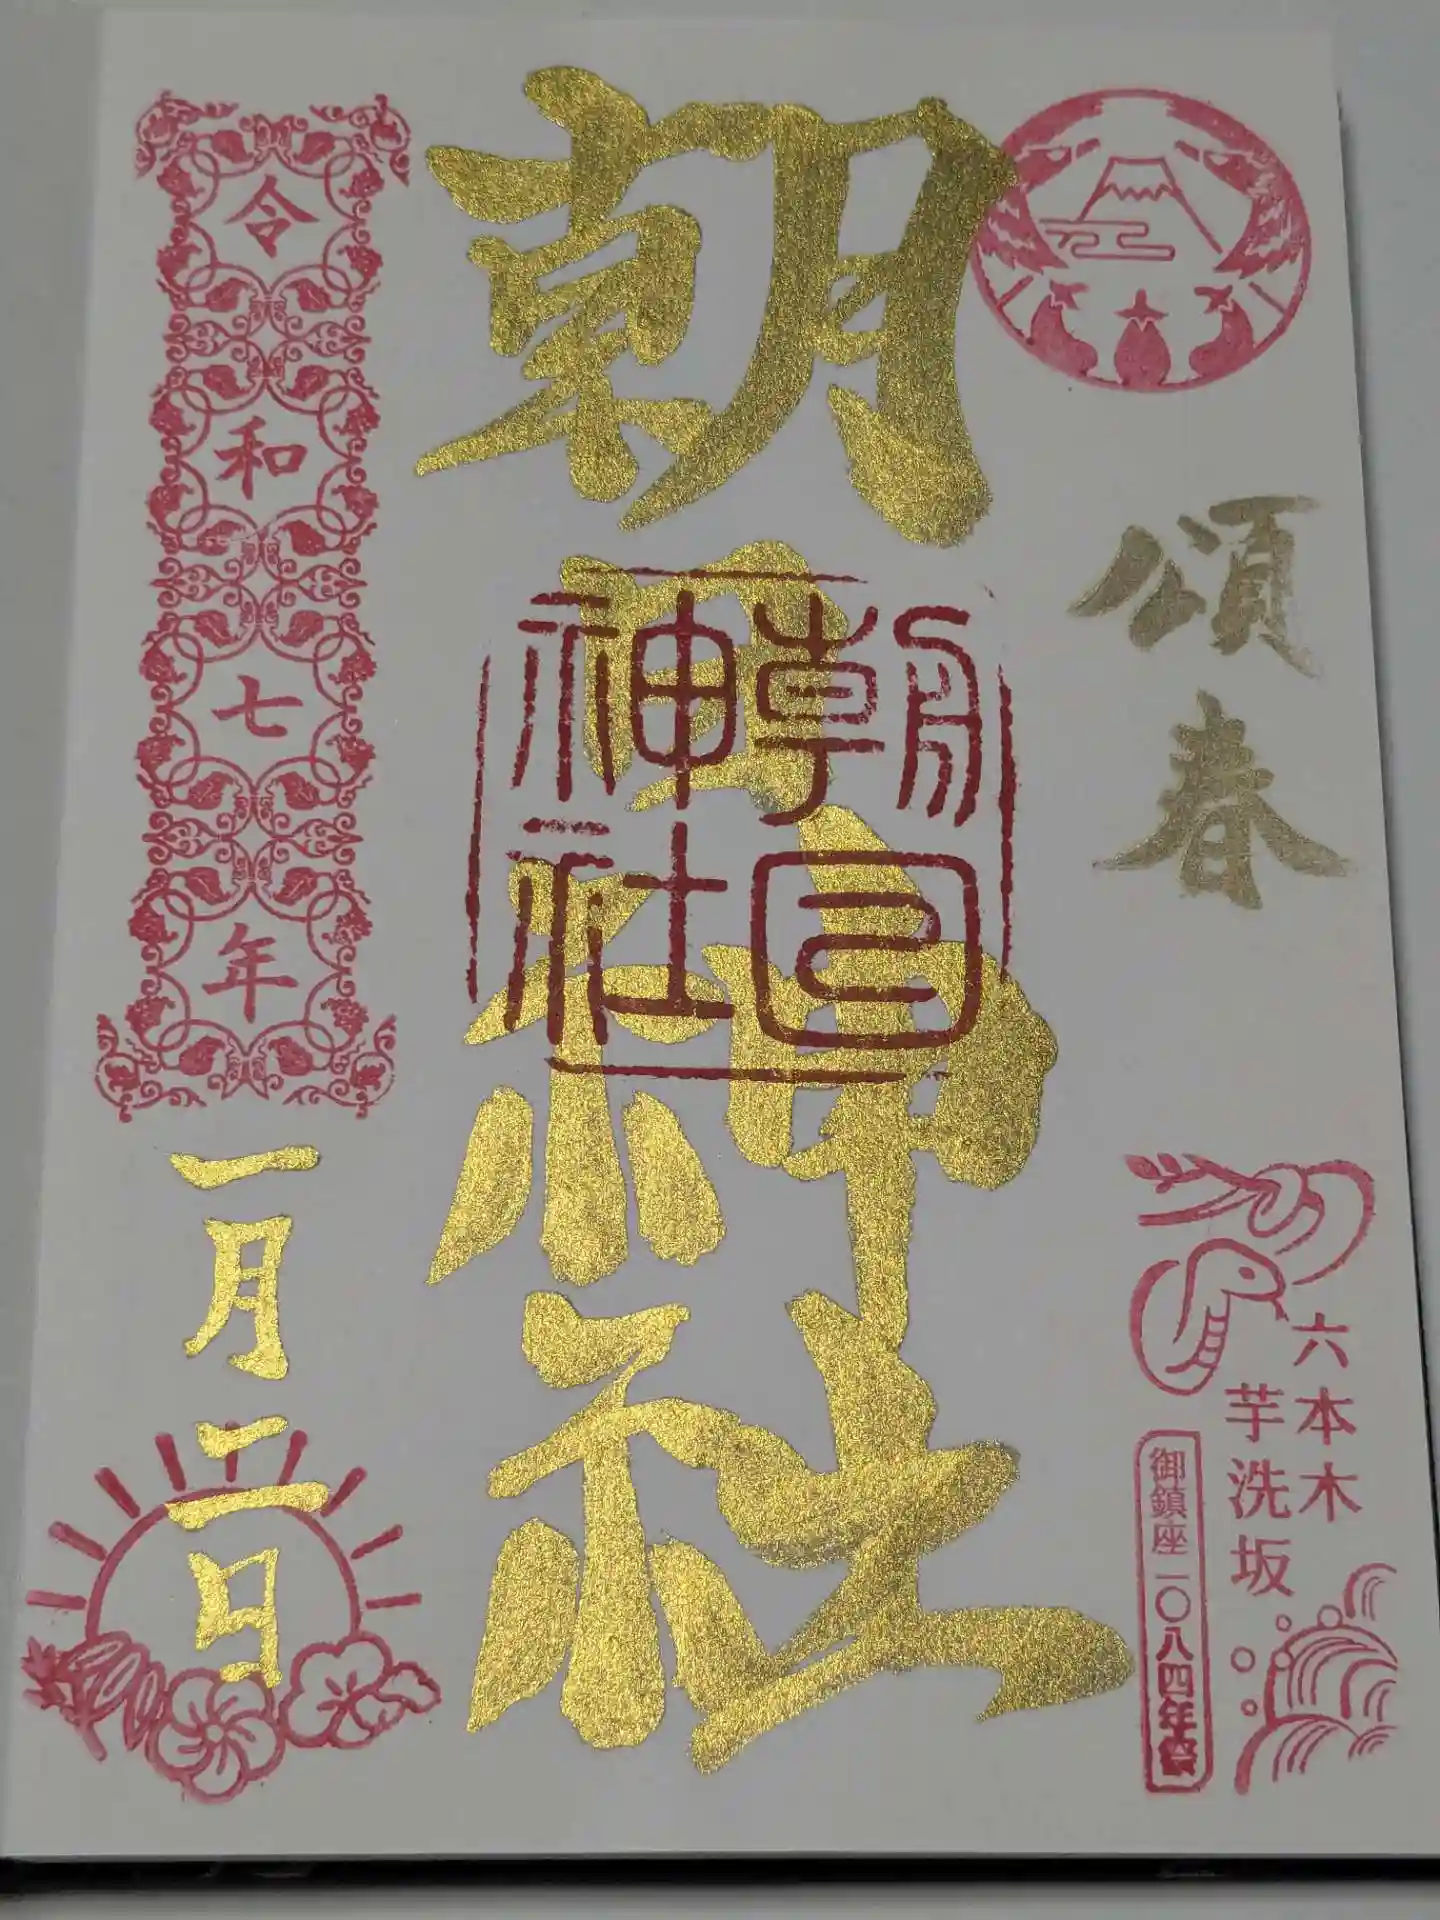 頌春
六本木
芋洗坂
御鎮座一〇八四年祭
朝日神社
朝日
神社
令和七年
一月二日